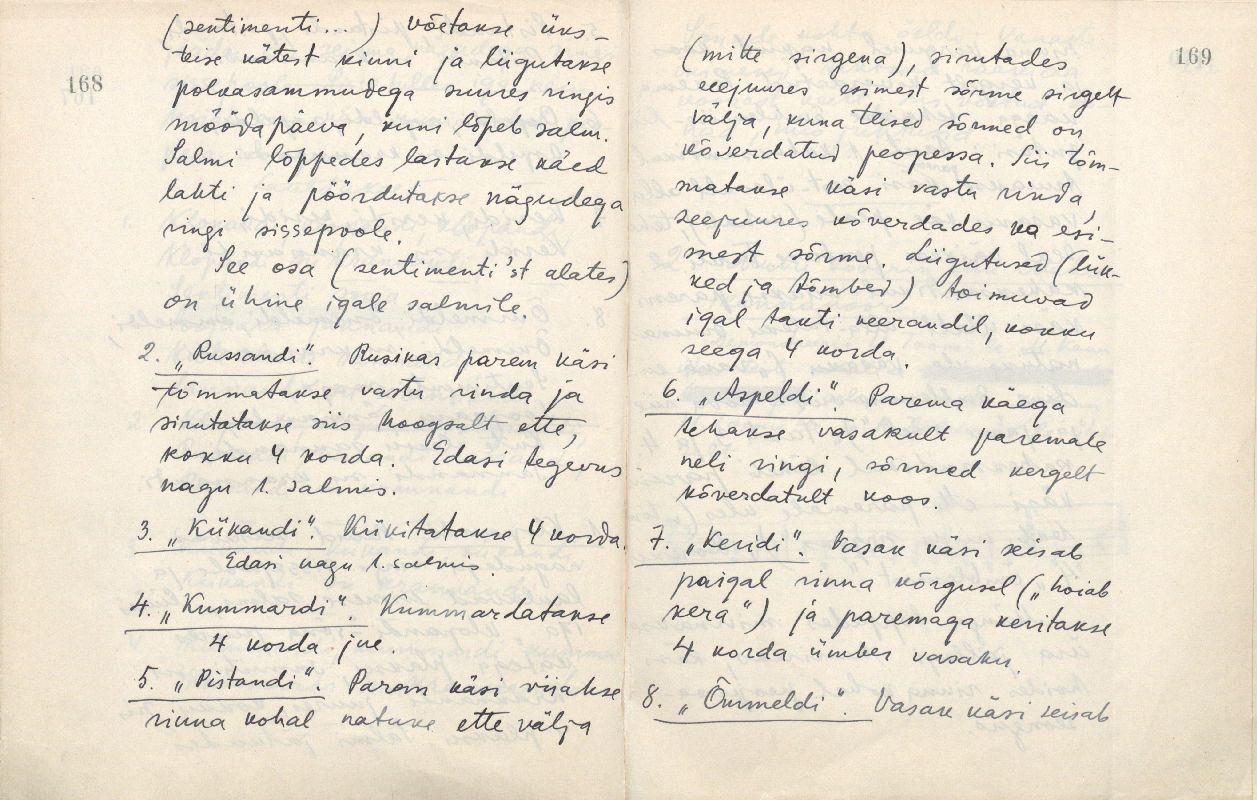 168
(sentimenti...) võetakse üks-
teise kätest kinni ja liigutakse
polkasammudega suures ringis
möödapäeva, kuni lõpeb salm.
Salmi lõppedes lastakse käed
lahti ja pöördutakse nägudega
ringi sissepoole.
See osa (sentimenti'st alates)
on ühine igale salmile.
2. „Russandi". Rusikas parem käsi
tõmmatakse vastu rinda ja
sirutatakse siis hoogsalt ette,
kokku 4 korda. Edasi tegevus
nagu 1. salmis.
3. „Kükandi". Kükitatakse 4 korda.
Edasi nagu 1. salmis.
4. „Kummardi". Kummardatakse
4 korda jne.
5. „Pistandi". Parem käsi viiakse
rinna kohal natuke ette välja
169
(mitte sirgena), sirutades
seejuures esimest sõrme sirgelt
välja, kuna teised sõrmed on
kõverdatud peopessa. Siis tõm-
matakse käsi vastu rinda,
seejuures kõverdades ka esi-
mest sõrme. Liigutused (lük-
ked ja tõmbed) toimuvad
igal takti veerandil, kokku
seega 4 korda.
6. „Aspeldi". Parema käega
tehakse vasakult paremale
neli ringi, sõrmed kergelt
kõverdatult koos.
7. „Keridi". Vasak käsi seisab
paigal rinna kõrgusel („hoiab
kera") ja paremaga keritakse
4 korda ümber vasaku.
8. „Õmmeldi". Vasak käsi seisab